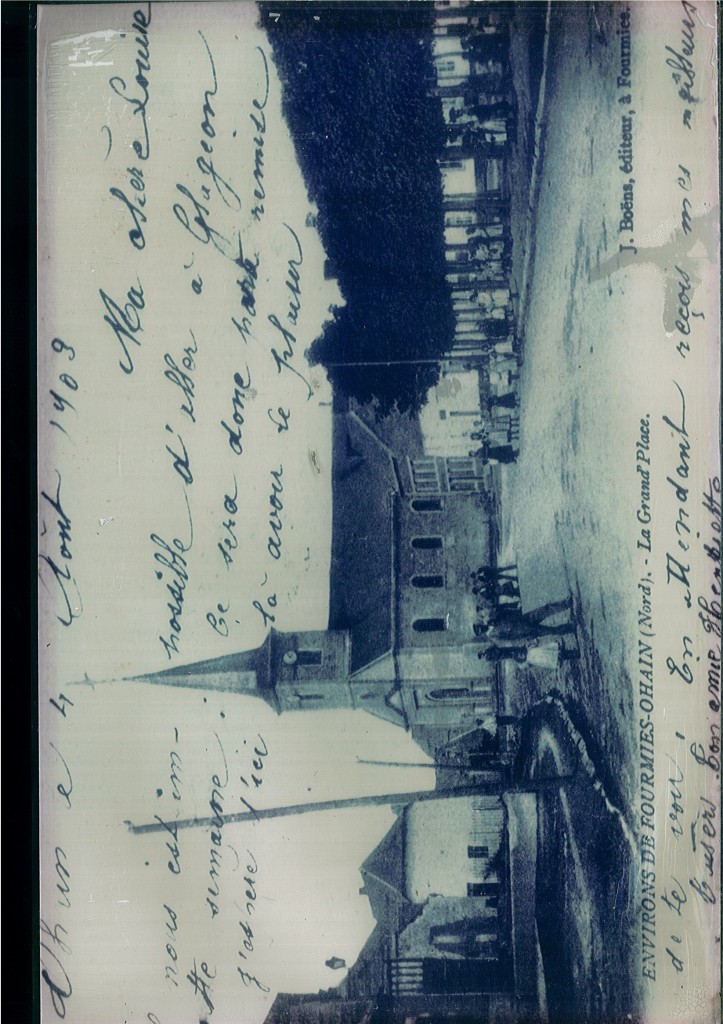 le 4 Août 1903
Ma chère Louise
nous est im- possible d'aller à Glageon
semaine. Ce sera donc partie remise
j'espère d'ici là avoir le plaisir
J. Boëns, éditeur, à Fourmies.
ENVIRONS DE FOURMIES-OHAIN (Nord). - La Grand'Place.
de te voir. En attendant reçois mes meilleurs
baisers Ton amie